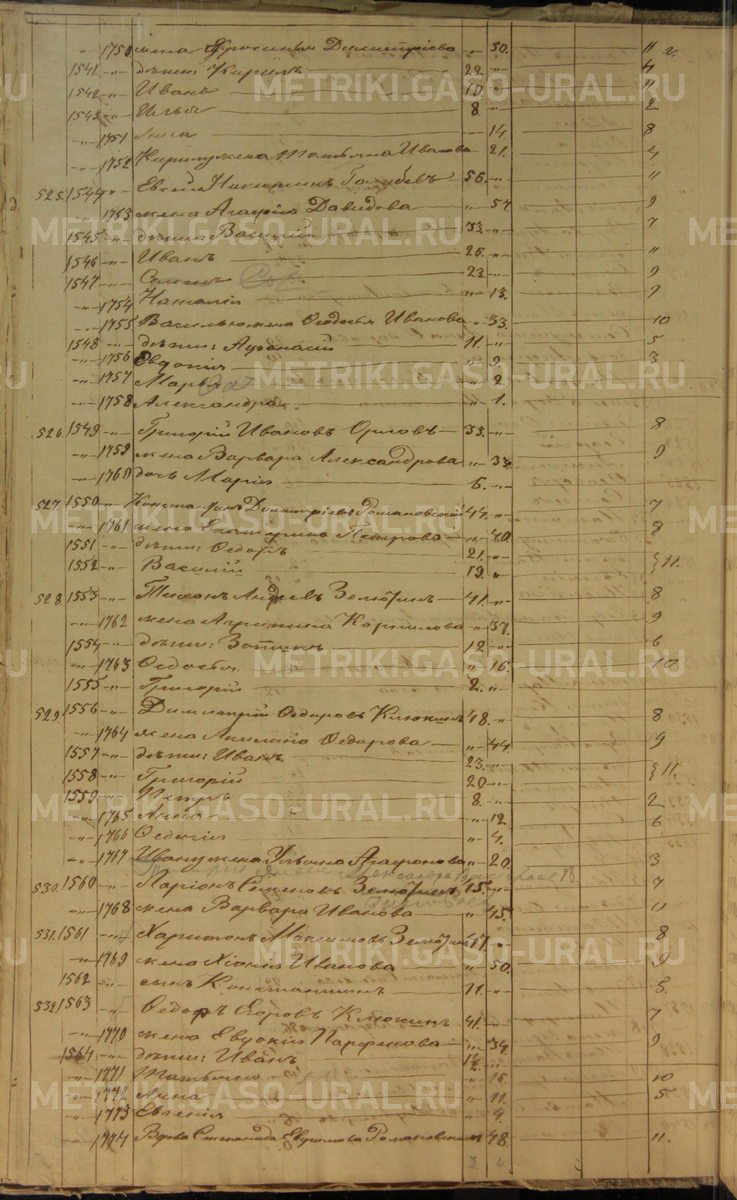 " 1750 жена Ефросинья Димитріева " 50. 11 г.
1541 " дѣти: Кирилъ 22 " 4
1542 " Иванъ 10 " "
1543 " Илья 8 " 2
" 1751 Анна " 14. 8
" 1752 Кирилу жена Татьяна Иванова " 21. 4
525. 1544 " 56. " "
" 1753 жена Агафья Давидова " 54 9
1545 " дѣти: Василій 33. " 7
1546 " Иванъ 26. " "
1547 " Семенъ 23. " 9
" 1754 Наталія " 13. 7
" 1755 Василью жена Ѳеодосья Иванова " 33. 10
1548 " дѣти: Афанасій 11. " 5
" 1756 Евдокія " 9. 3
" 1757 Марья " 2.
" 1758 Александра " 1.
526. 1549 " Григорій Ивановъ Орловъ 33. " 8
" 1759 жена Варвара Александрова " 33. 9
" 1760 дочь Марія " 6. "
527. 1550 " Константинъ Димитріевъ Романовскій 44. " 7
" 1761 жена Екатерина Петрова " 40 8
1551 " дѣти: Ѳедотъ 21. "
1552 " Василій 19. " } 11.
528. 1553 " Тихонъ Андреевъ 41. " 8
" 1762 жена Агрипина Корнилова " 37. 9
1554 " дѣти: 12 " 6
" 1763 Ѳедосья " 16. 10
1555 " Григорій 2. "
529. 1556 " Димитрій Ѳедоровъ Клюкинъ 48. " 8
" 1764 жена Акилина Ѳедорова " 44. 9
1557 " дѣти: Иванъ 23. "
1558 " Григорій 20 " } 11.
1559 " Петръ 8. " 2
" 1765 Анна " 12. 6
" 1766 " 4.
" 1767 Ивану жена Ульяна Агафонова " 20. 3
530. 1560 " Ларіонъ Семеновъ 45. " 7
" 1768 жена Варвара Иванова " 45. "
531. 1561 " Харитонъ Максимовъ 47. " 8
" 1769 жена Хіонія Иванова " 50. 9
1562 " сынъ Константинъ 11. " 8.
532. 1563 " Ѳедоръ Егоровъ Клюкинъ 41. " 7
" 1770 жена Евдокія Парфенова " 39 9
1564 " дѣти: Иванъ "
" 1771 Татьяна " 16 10
" 1772 Анна " 11. 5
" 1773 Евгенія " 4.
" 1774 Вдова Степанида Романовская " 48. 11.
METRIKI.GASO-URAL.RU